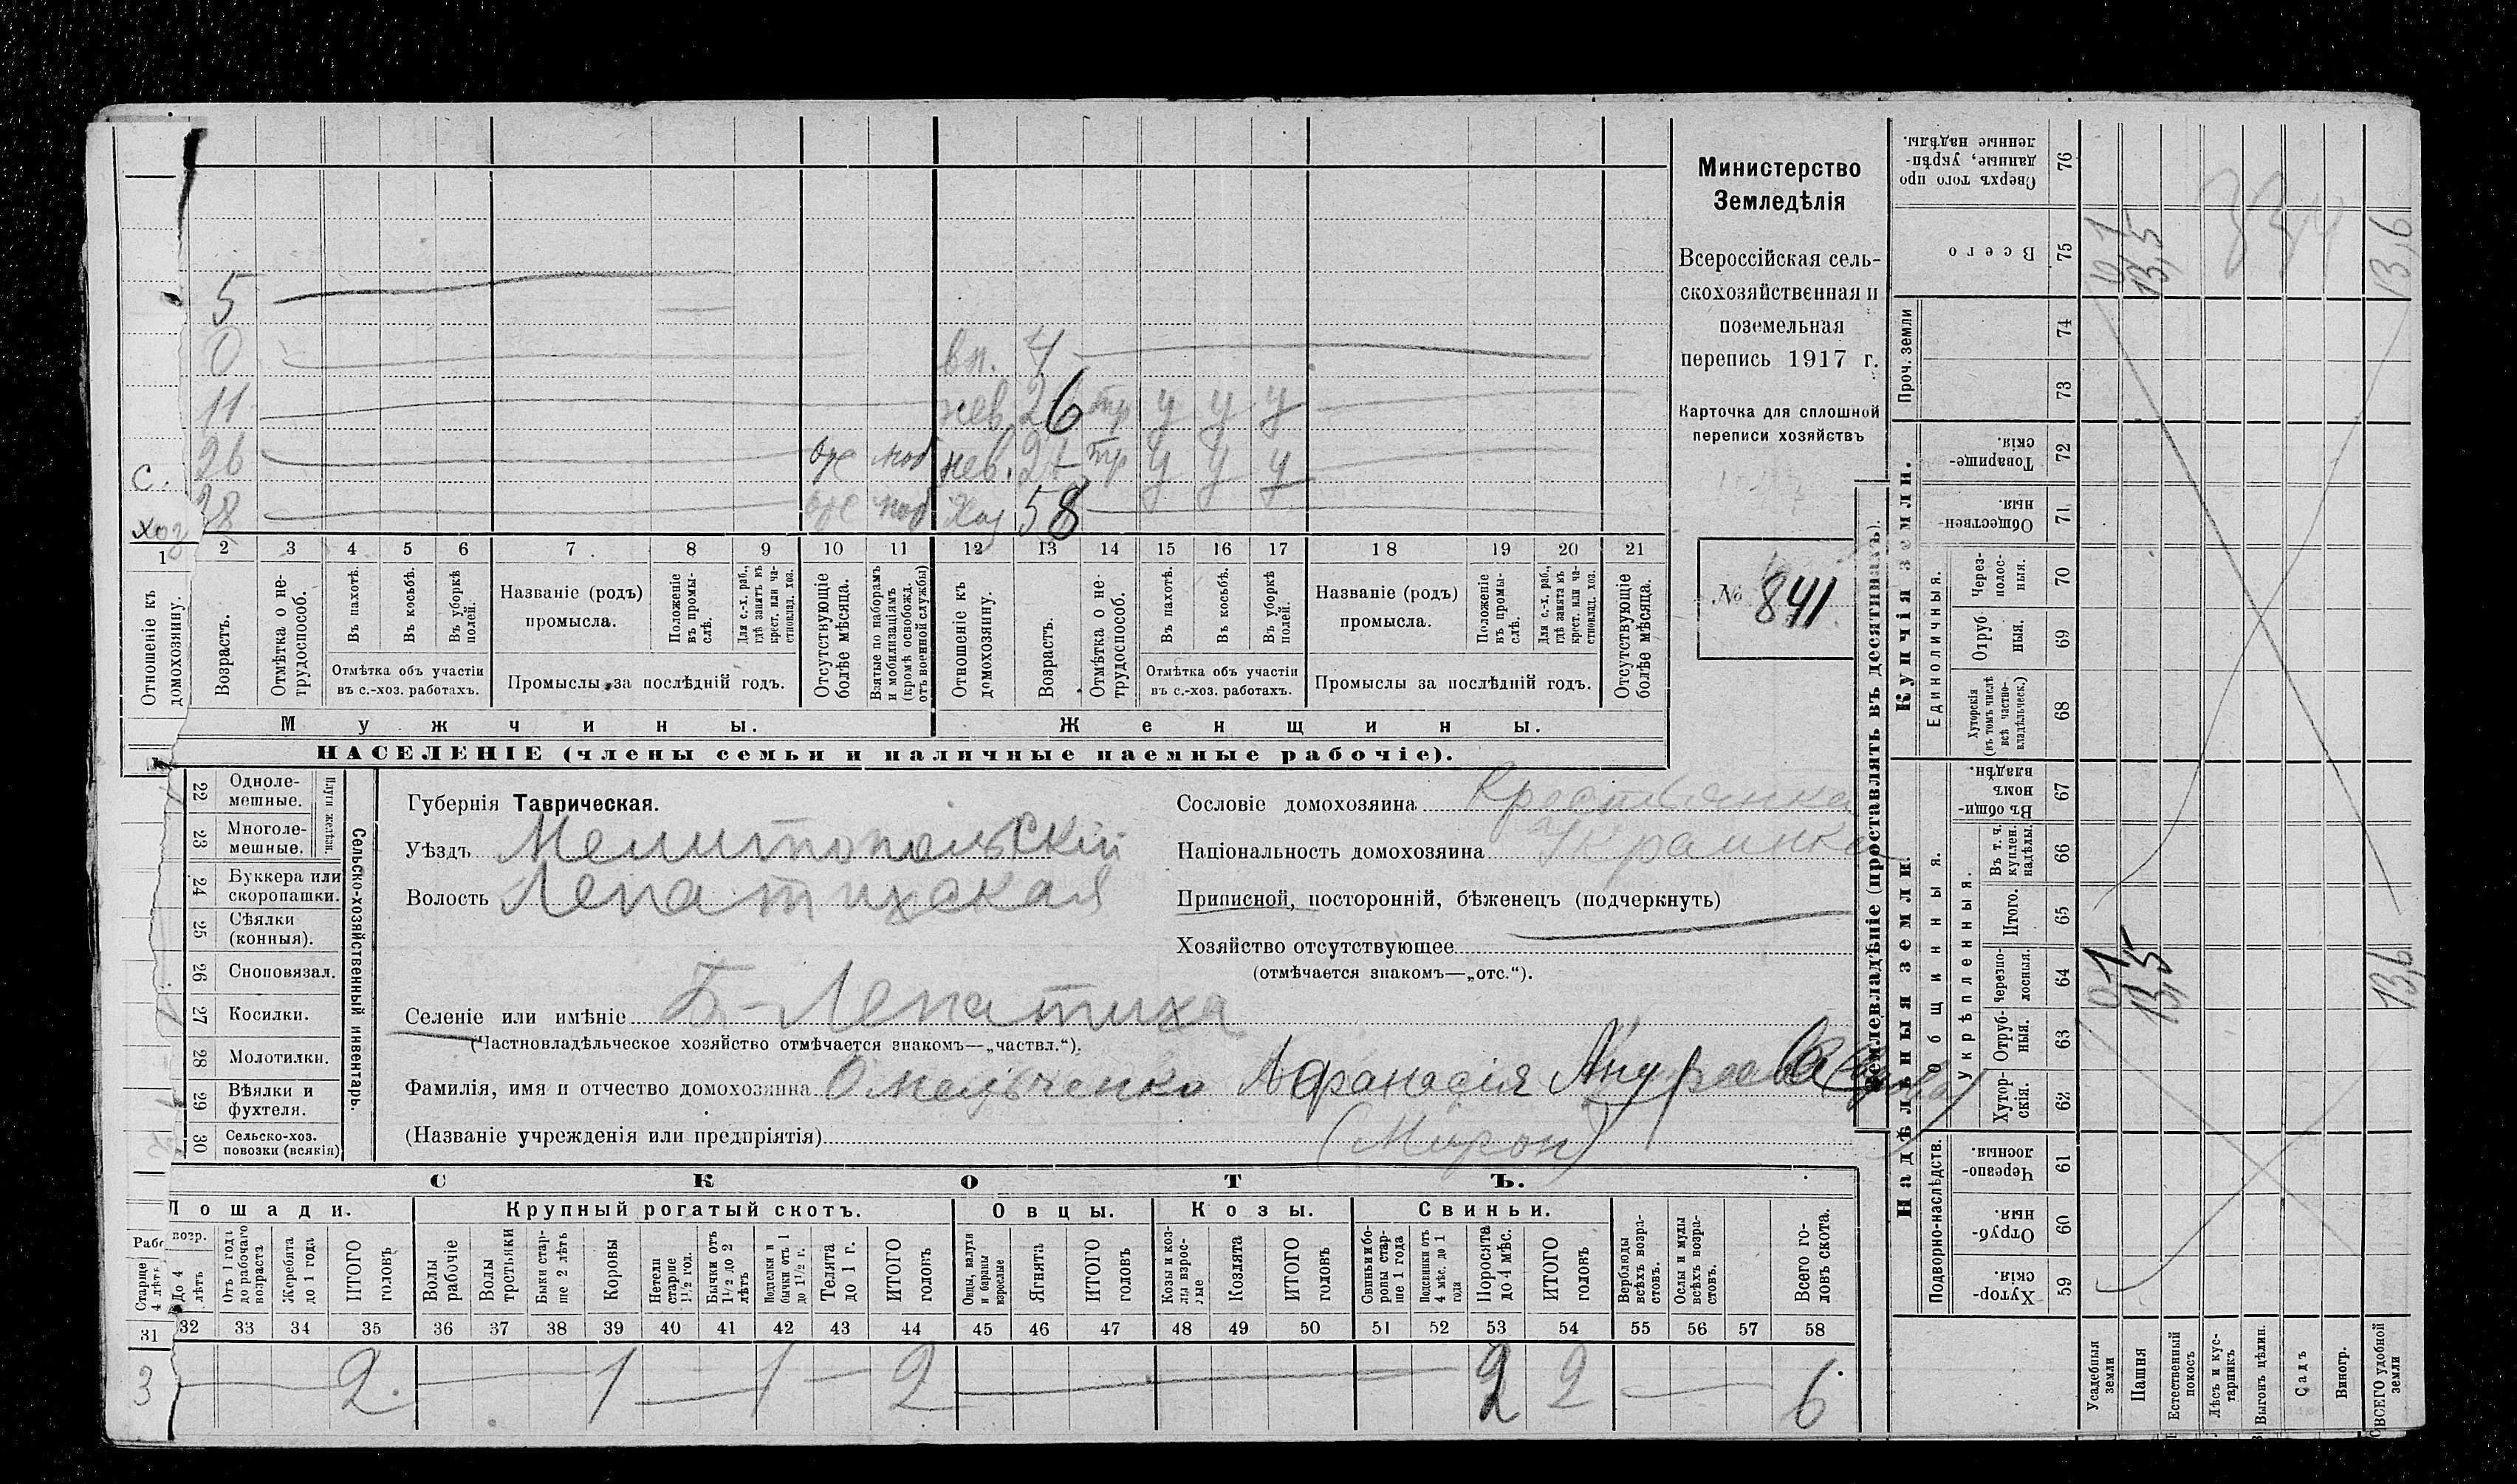 Министерство
Земледѣлія
Всероссійская сель-
скохозяйственная и
поземельная
перепись 1917 г.
Карточка для сплошной
переписи хозяйствъ
№ 841
5
0
вн. 4
11
нев. 26 тр у у у
26
нев. тр у у у
с.
28
хоз 58
хоз
1 2 3 4 5 6 7 8 9 10 11 12 13 14 15 16 17 18 19 20 21
Отношеніе къ домохозяину.
Возрастъ.
Отмѣтка о не-трудоспособ.
Въ пахотѣ.
Въ косьбѣ.
Въ уборкѣ полей.
Отмѣтка объ участіи
въ с.-хоз. работахъ.
Названіе (родъ)
промысла.
Положеніе въ промы-слѣ.
Для с.-х. раб., гдѣ занятъ въ крест. или ча-стновлад. хоз.
Промыслы за послѣдній годъ.
Отсутствующіе болѣе мѣсяца.
Взятые по наборамъ и мобилизаціямъ (кромѣ освобожд. отъ военной службы)
Отношеніе къ домохозяину.
Возрастъ.
Отмѣтка о не-трудоспособ.
Въ пахотѣ.
Въ косьбѣ.
Въ уборкѣ полей.
Отмѣтка объ участіи
въ с.-хоз. работахъ.
Названіе (родъ)
промысла.
Положеніе въ промы-слѣ.
Для с.-х. раб., гдѣ занята въ крест. или ча-стновлад. хоз.
Промыслы за послѣдній годъ.
Отсутствующіе болѣе мѣсяца.
Мужчины.
Женщины.
НАСЕЛЕНІЕ (члены семьи и наличные наемные рабочіе).
Сельско-хозяйственный инвентарь.
Плуги желѣзн.
22 Одноле-мешные.
23 Многоле-мешные.
24 Буккера или скоропашки.
25 Сѣялки (конныя).
26 Сноповязал.
27 Косилки.
28 Молотилки.
29 Вѣялки и фухтеля.
30 Сельско-хоз. повозки (всякія)
Губернія Таврическая.
Уѣздъ Мелитопольскій
Волость Лепатихская
Селеніе или имѣніе Б-Лепатиха
(Частновладѣльческое хозяйство отмѣчается знакомъ—„частвл.“).
Фамилія, имя и отчество домохозяина Омельченко Афанасія Андреева
(Названіе учрежденія или предпріятія) (Мирон)
Сословіе домохозяина Крестьянка
Національность домохозяина Украинка
Приписной, посторонній, бѣженецъ (подчеркнуть)
Хозяйство отсутствующее
(отмѣчается знакомъ—„отс.“).
СКОТЪ.
Лошади.
Крупный рогатый скотъ.
Овцы.
Козы.
Свиньи.
Старше 4 лѣтъ
До 4 лѣтъ
Отъ 1 года до рабочаго возраста
Жеребята до 1 года
ИТОГО головъ
Волы рабочіе
Волы третьяки
Быки стар-ше 2 лѣтъ
Коровы
Нетели старше 1½ год.
Бычки отъ 1½ до 2 лѣтъ
Подтелки и бычки отъ 1 до 1½ г.
Телята до 1 г.
ИТОГО головъ
Овцы, валухи и бараны взрослые
Ягнята
ИТОГО головъ
Козы и коз-лы взрос-лые
Козлята
ИТОГО головъ
Свиньи и бо-ровы стар-ше 1 года
Подсвинки отъ 4 мѣс. до 1 года
Поросята до 4 мѣс.
ИТОГО головъ
Верблюды всѣхъ возра-стовъ.
Ослы и мулы всѣхъ возра-стовъ.
Всего го-ловъ скота.
31 32 33 34 35 36 37 38 39 40 41 42 43 44 45 46 47 48 49 50 51 52 53 54 55 56 57 58
3 2. 1 1 2 2 2 6
Землевладѣніе (проставлять въ десятинахъ).
Купчія земли.
Надѣльныя земли.
Сверхъ того про данные, укрѣп-ленные надѣлы. 76
Всего 75
Проч. земли 74
73
Товарище-скія. 72
Обществен-ныя 71
Единоличныя.
Через-полос-ныя. 70
Отруб ныя. 69
Хуторскія (въ томъ числѣ всѣ частно-владѣльческ.) 68
Общинныя.
Въ общин-номъ владѣн. 67
Укрѣпленныя.
Въ т. ч. куплен. надѣлы. 66
Итого. 65
Черезпо-лосныя. 64
Отруб-ныя. 63
Хутор-скія. 62
Подворно-наслѣдств.
Черезпо-лосныя. 61
Отруб-ныя. 60
Хутор-скія. 59
0,1 13,5 13,6
0,1 13,5 13,6
Усадебныя земли
Пашня
Естественный покосъ
Лѣсъ и кус-тарникъ
Выгонъ цѣлин.
Садъ
Виногр.
ВСЕГО удобной земли